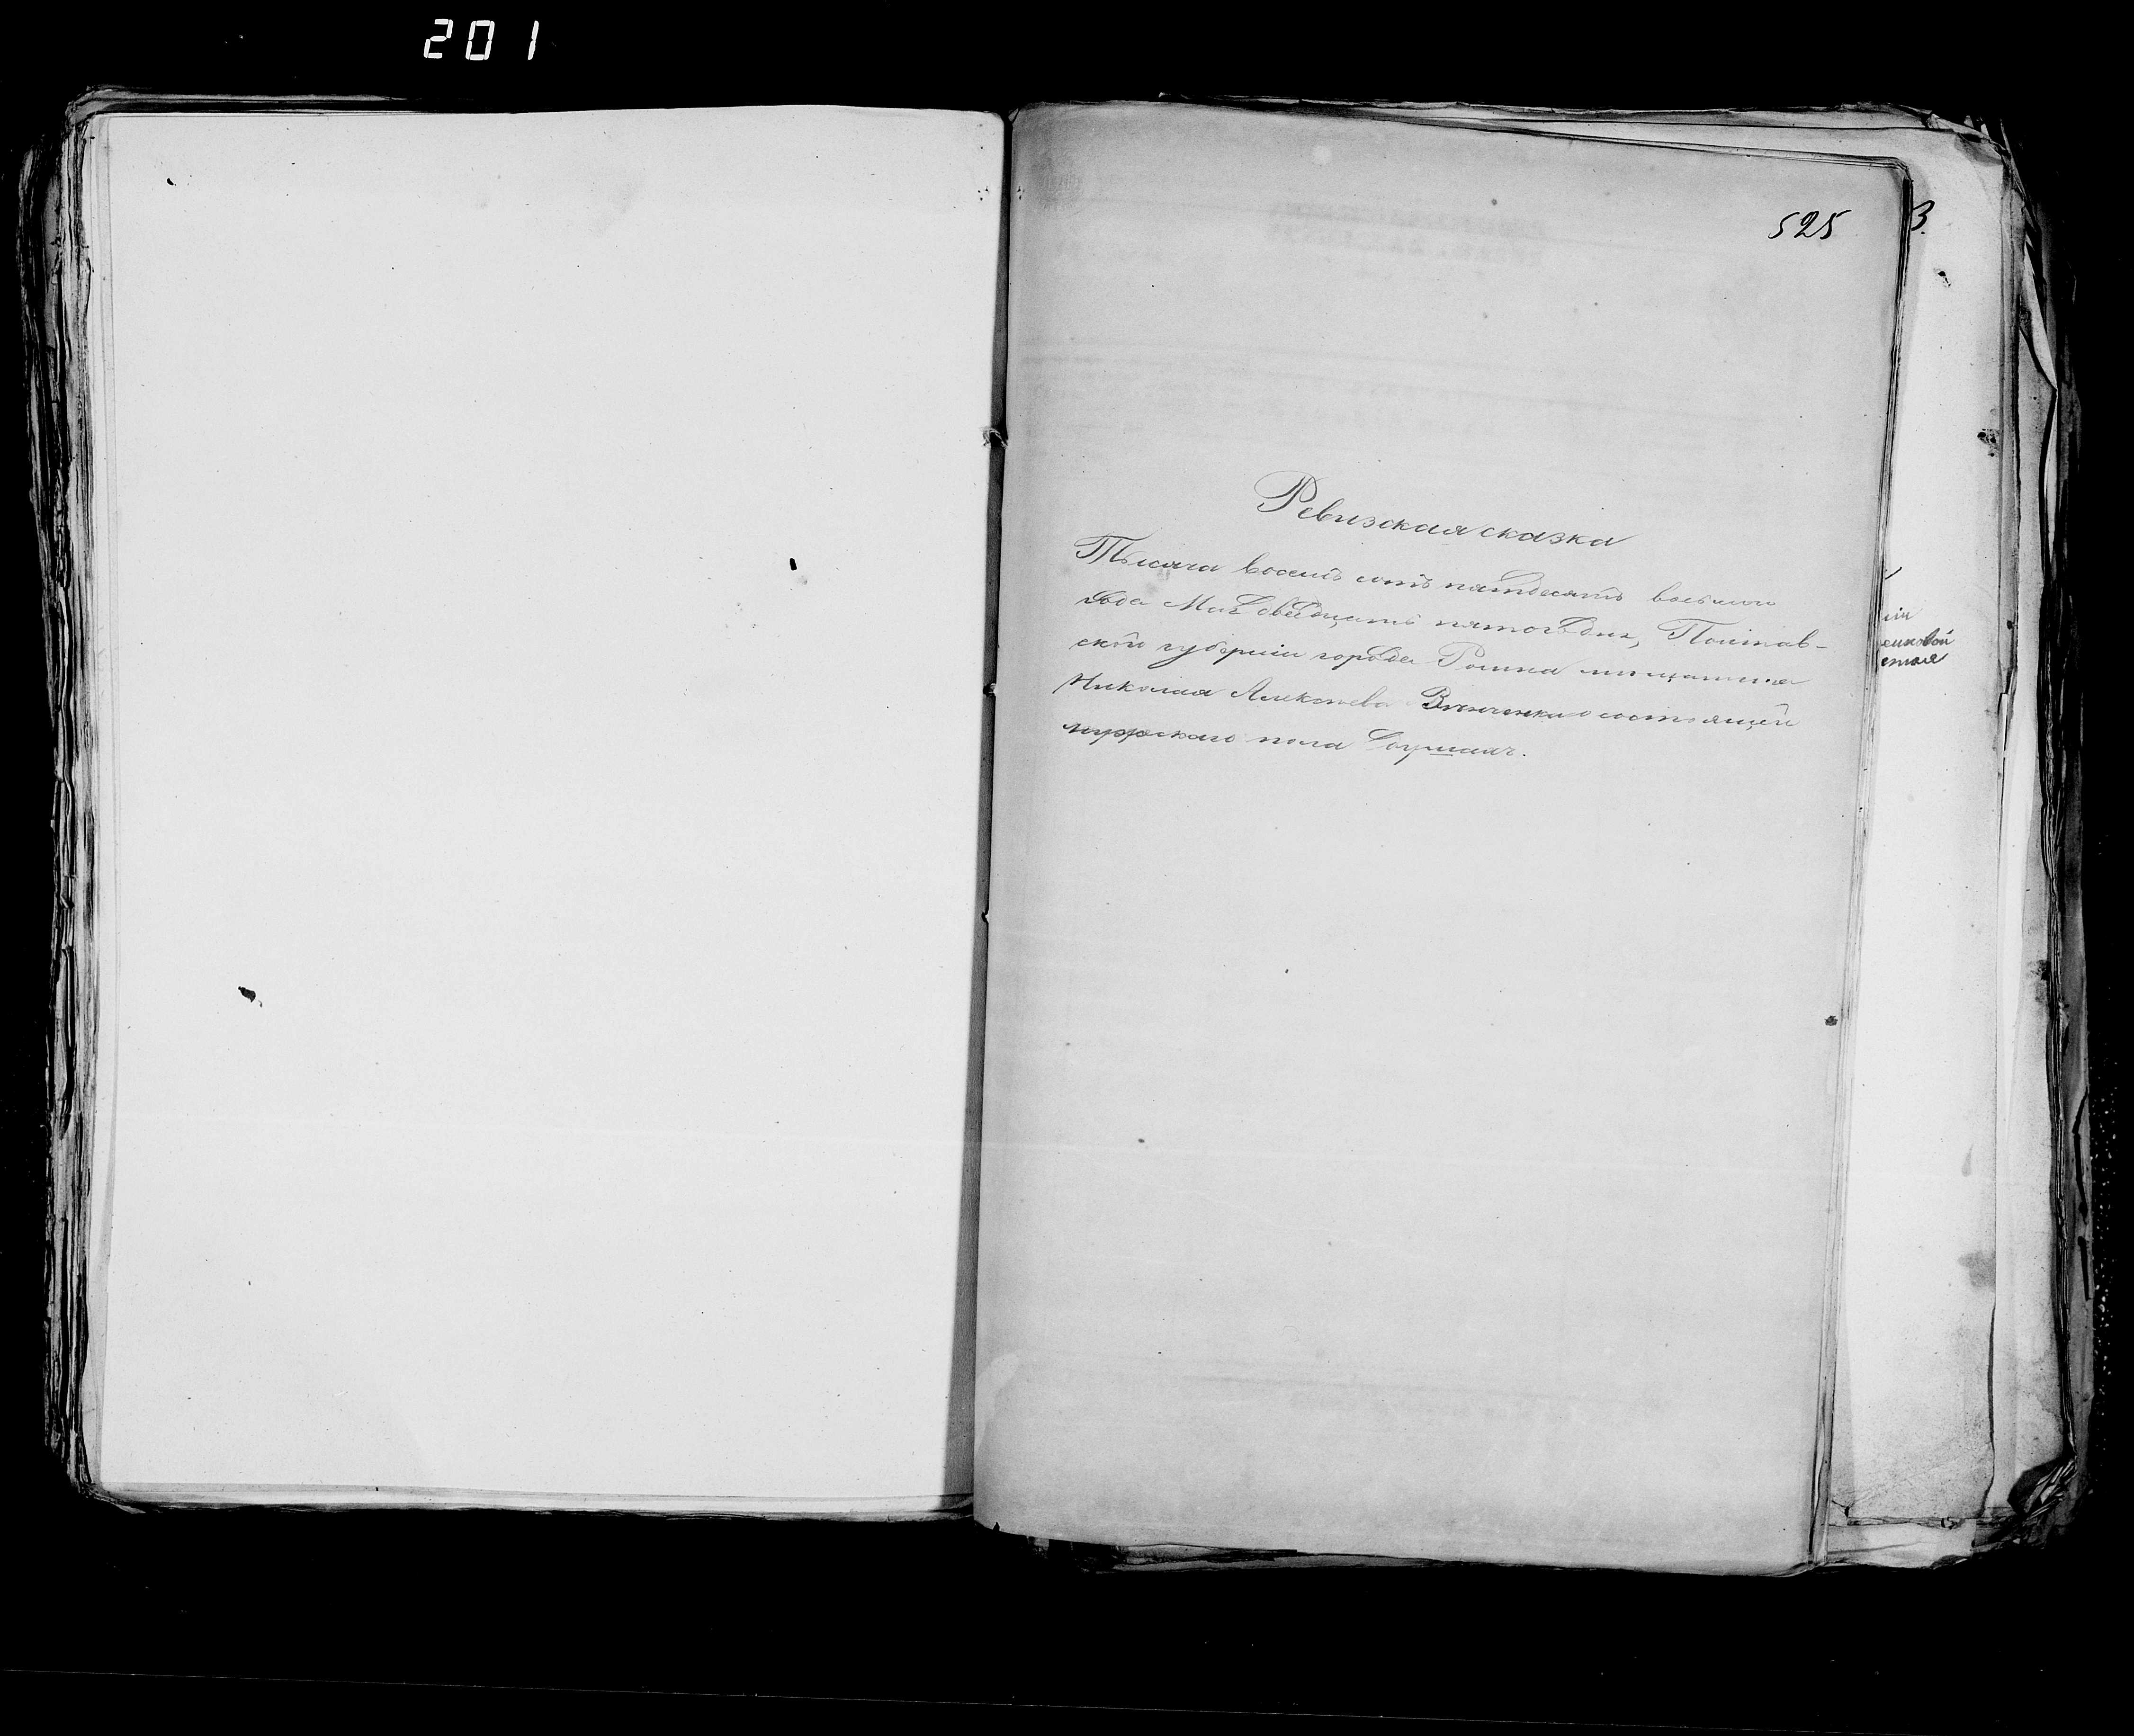 201
525
3.
Ревизская сказка
Тысяча восемь сотъ пятдесятъ восьмого
года Мая двадцать пятого дня, Полтав-
ской губерніи города Ромна мещанина
Николая Алексеева состоящей
мужскаго пола душахъ.